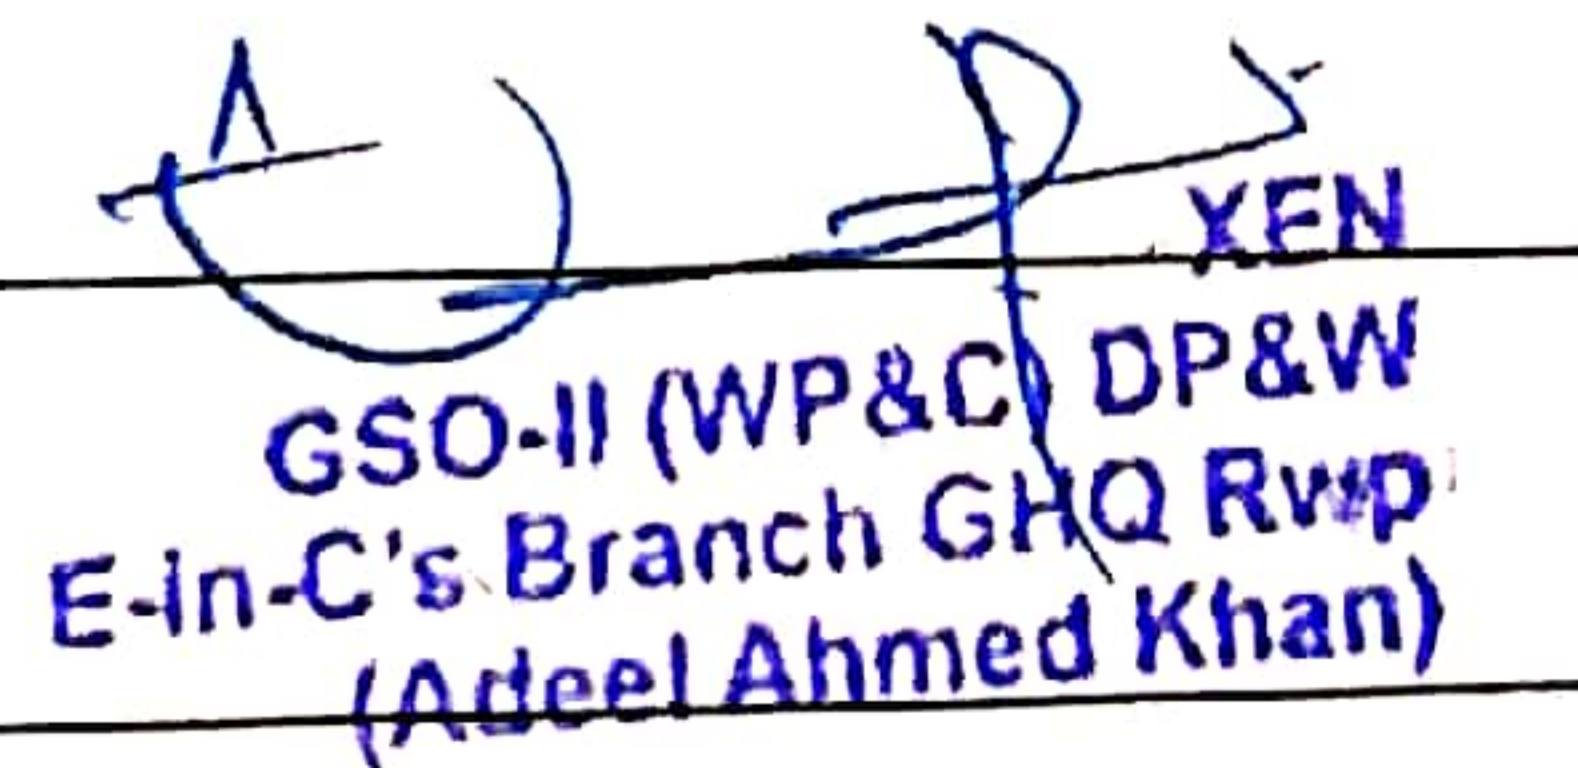 XEN
GSO-II (WP&C) DP&W
E-in-C's Branch GHQ Rwp
(Adeel Ahmed Khan)